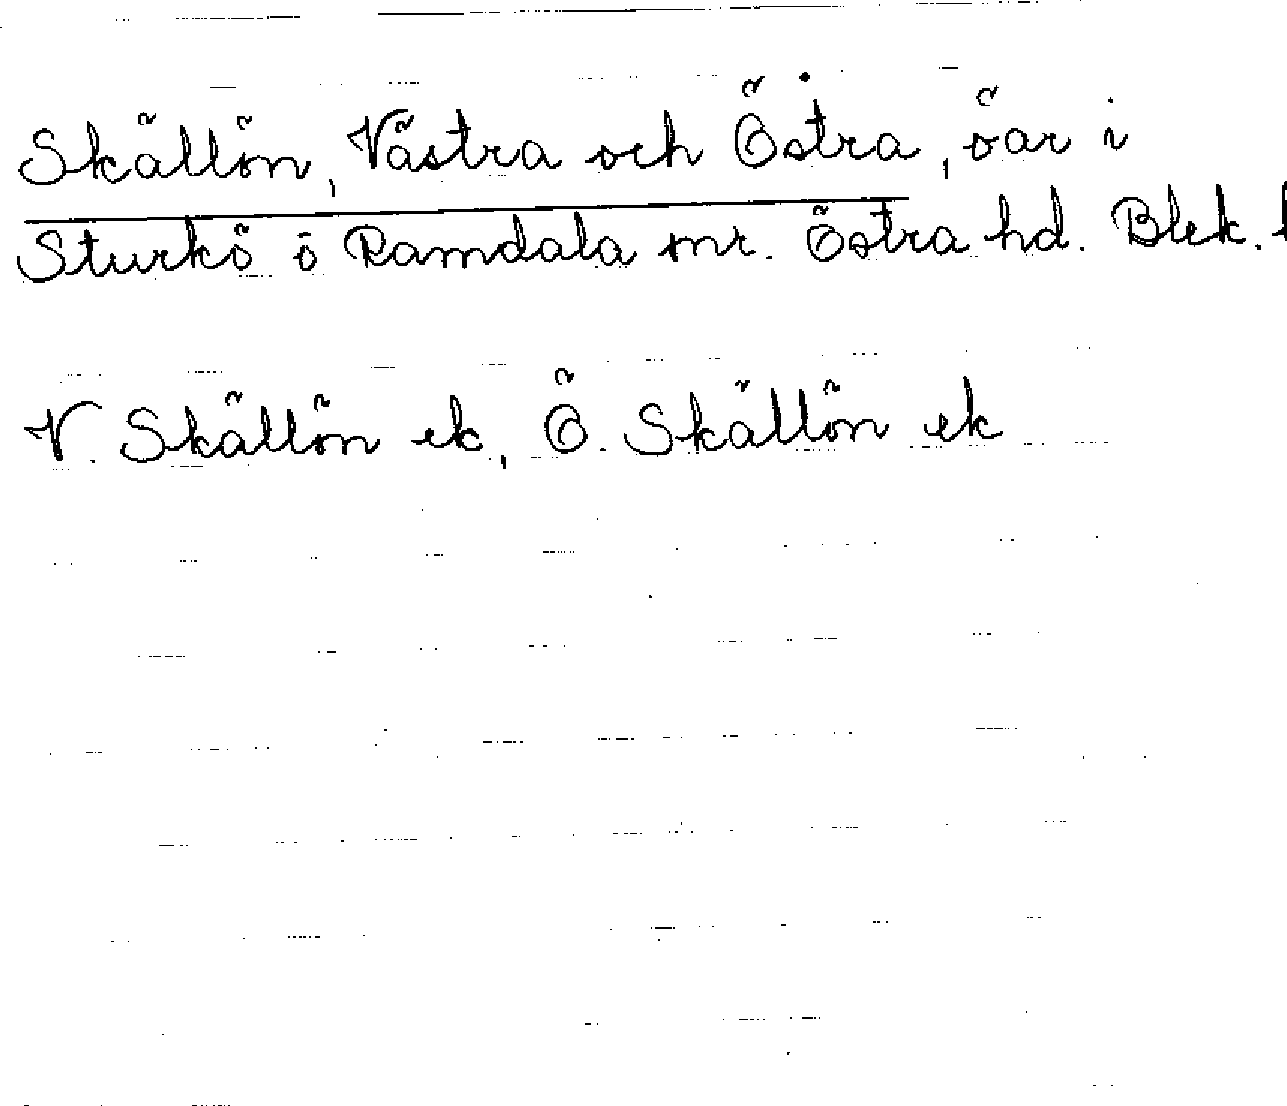 Skällön, Västra och Östra, öar i
Sturkö o Ramdala snr. Östra hd. Blek.
V. Skällön ek, Ö. Skällön ek